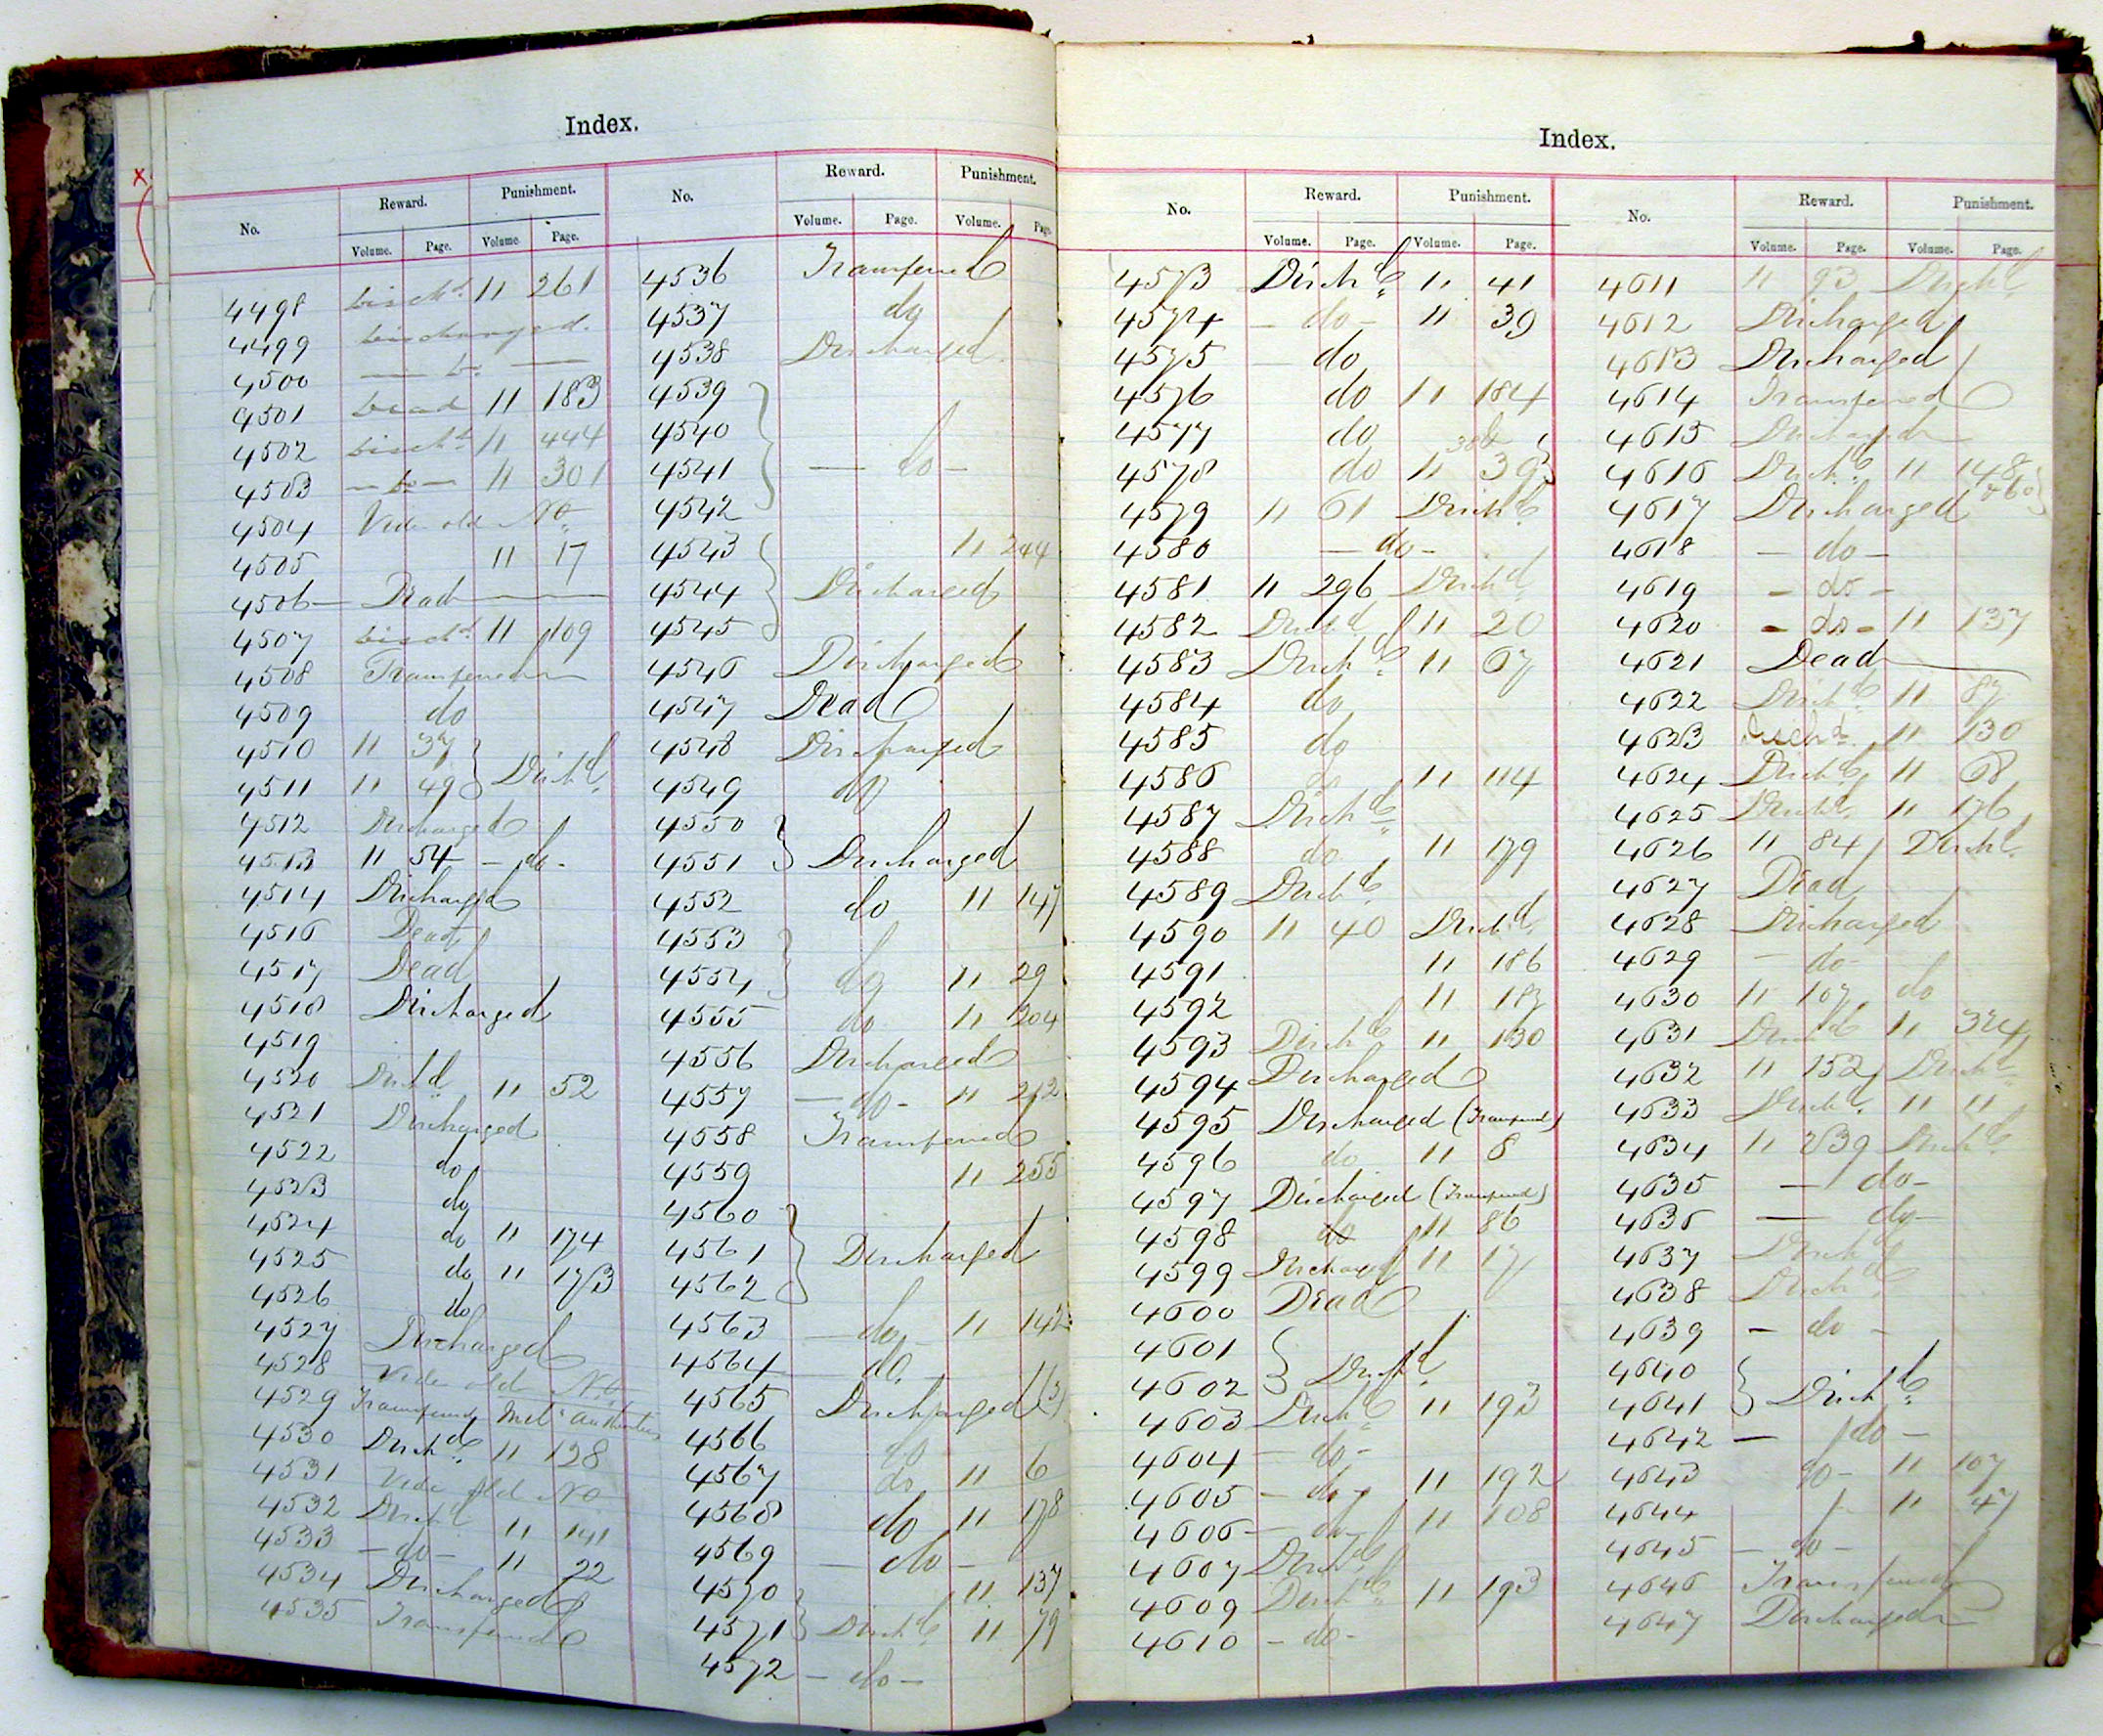 Index.
No. Reward. Punishment. No. Reward. Punishment.
Volume. Page. Volume. Page. Volume. Page. Volume. Page.
4498 Disch.d 11 261
4499 Discharged.
4500 — Do —
4501 Dead 11 183
4502 Disch.d 11 444
4503 — Do — 11 301
4504 Vide old No
4505 11 17
4506 — Dead —
4507 Disch.d 11 109
4508 Transferred
4509 do
4510 11 37
4511 11 49 } Disch.d
4512 Discharged
4513 11 54 - do -
4514 Discharged
4516 Dead
4517 Dead
4518 Discharged
4519
4520 Disch.d 11 52
4521 Discharged
4522 do
4523 do
4524 do 11 174
4525 do 11 173
4526 do
4527 Discharged
4528 Vide old No
4529 Transferred
4530 Disch.d 11 128
4531 Vide old No
4532 Disch.d 11 141
4533 - do - 11 22
4534 Discharged
4535 Transferred
4536 Transferred
4537 do
4538 Discharged
4539
4540
4541 } — do —
4542
4543 11 244
4544 } Discharged
4545
4546 Discharged
4547 Dead
4548 Discharged
4549 do
4550
4551 } Discharged
4552 do 11 147
4553
4554 } do 11 29
4555 do 11 204
4556 Discharged
4557 — do - 11 212
4558 Transferred
4559 11 255
4560
4561 } Discharged
4562
4563 — do — 11 142
4564 — do. —
4565 Discharged (3)
4566 do
4567 do 11 6
4568 do 11 178
4569 — do —
4570 11 137
4571 } Disch.d 11 79
4572 — do —
Index.
No. Reward. Punishment. No. Reward. Punishment.
Volume. Page. Volume. Page. Volume. Page. Volume. Page.
4573 Disch.d 11 41
4574 — do — 11 39
4575 — do
4576 do 11 184
4577 do
4578 do 11 393
4579 11 61 Disch.d
4580 — do -
4581 11 296 Disch.d
4582 Disch.d 11 20
4583 Disch.d 11 67
4584 do
4585 do
4586 do 11 114
4587 Disch.d
4588 do 11 179
4589 Disch.d
4590 11 40 Disch.d
4591 11 186
4592 11 187
4593 Disch.d 11 130
4594 Discharged
4595 Discharged (Transferred)
4596 do 11 8
4597 Discharged (Transferred)
4598 do 11 86
4599 Discharged 11 17
4600 Dead
4601
4602 } Disch.d
4603 Disch.d 11 193
4604 — do -
4605 — do - 11 192
4606 — do - 11 108
4607 Disch.d
4609 Disch.d 11 193
4610 - do -
4611 11 93 Disch.d
4612 Discharged
4613 Discharged
4614 Transferred
4615 Discharged
4616 Disch.d 11 148
4617 Discharged
4618 — do —
4619 - do -
4620 - do - 11 137
4621 Dead
4622 Disch.d 11 87
4623 Disch.d 11 130
4624 Disch.d 11 68
4625 Disch.d 11 176
4626 11 84 Disch.d
4627 Dead
4628 Discharged
4629 - do -
4630 11 107 do
4631 Disch.d 11 324
4632 11 152 Disch.d
4633 Disch.d 11 11
4634 11 239 Disch.d
4635 — do -
4636 — do -
4637 Disch.d
4638 Disch.d
4639 — do -
4640
4641 } Disch.d
4642 — do —
4643 do - 11 107
4644 11 47
4645 — do -
4646 Transferred
4647 Discharged